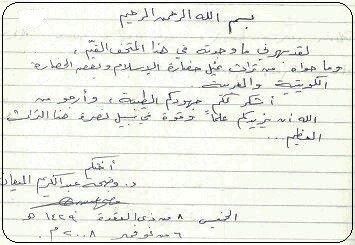 بسم الله الرحمن الرحيم
لقد سرني ما وجدته في هذا المتحف القيّم،
وما حواه من تراث يمثل حضارة الإسلام وبعض الحضارة
الكويتية والعربية.
أشكر لكم جهودكم الطيبة، وأرجو من
الله أن يزيدكم علماً وقوة في سبيل نصرة هذا التراث
العظيم...
أخوكم
د. وجيه عبدالكريم
الخميس ٨ من ذي القعدة ١٤٢٩ هـ
٦ من نوفمبر ٢٠٠٨ م.